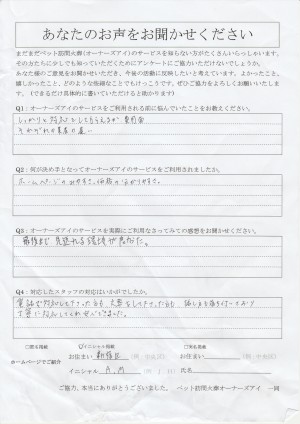 あなたのお声をお聞かせください
まだまだペット訪問火葬(オーナーズアイ)のサービスを知らない方がたくさんいらっしゃいます。
そのかたたちに少しでも知っていただくためにアンケートにご協力いただけないでしょうか。
あなた様のご意見をお聞かせいただき、今後の活動に反映したいと考えています。よかったこと、
嬉しかったこと、どのような些細なことでもけっこうです。ぜひご協力をよろしくお願いいたしま
す。(できるだけ具体的に書いていただけると助かります)
Q1:オーナーズアイのサービスをご利用される前に悩んでいたことをお教えください。
しっかりと対応をしてもらえるか
Q2:何が決め手となってオーナーズアイのサービスをご利用されましたか。
ホームページの見やすさ、価格の分かりやすさ。
Q3:オーナーズアイのサービスを実際にご利用なさってみての感想をお聞かせください。
最後まで見送れる環境が
Q4:対応したスタッフの対応はいかがでしたか。
電話で対応して下さった方も、火葬をして下さった方も、
丁寧に対応して
□匿名掲載
☑イニシャル掲載
□実名掲載
ホームページでご紹介
お住まい 新宿区 (例:中央区)
お住まい (例:中央区)
イニシャル A.M
氏名
ご協力、本当にありがとうございました。 ペット訪問火葬オーナーズアイ 一同